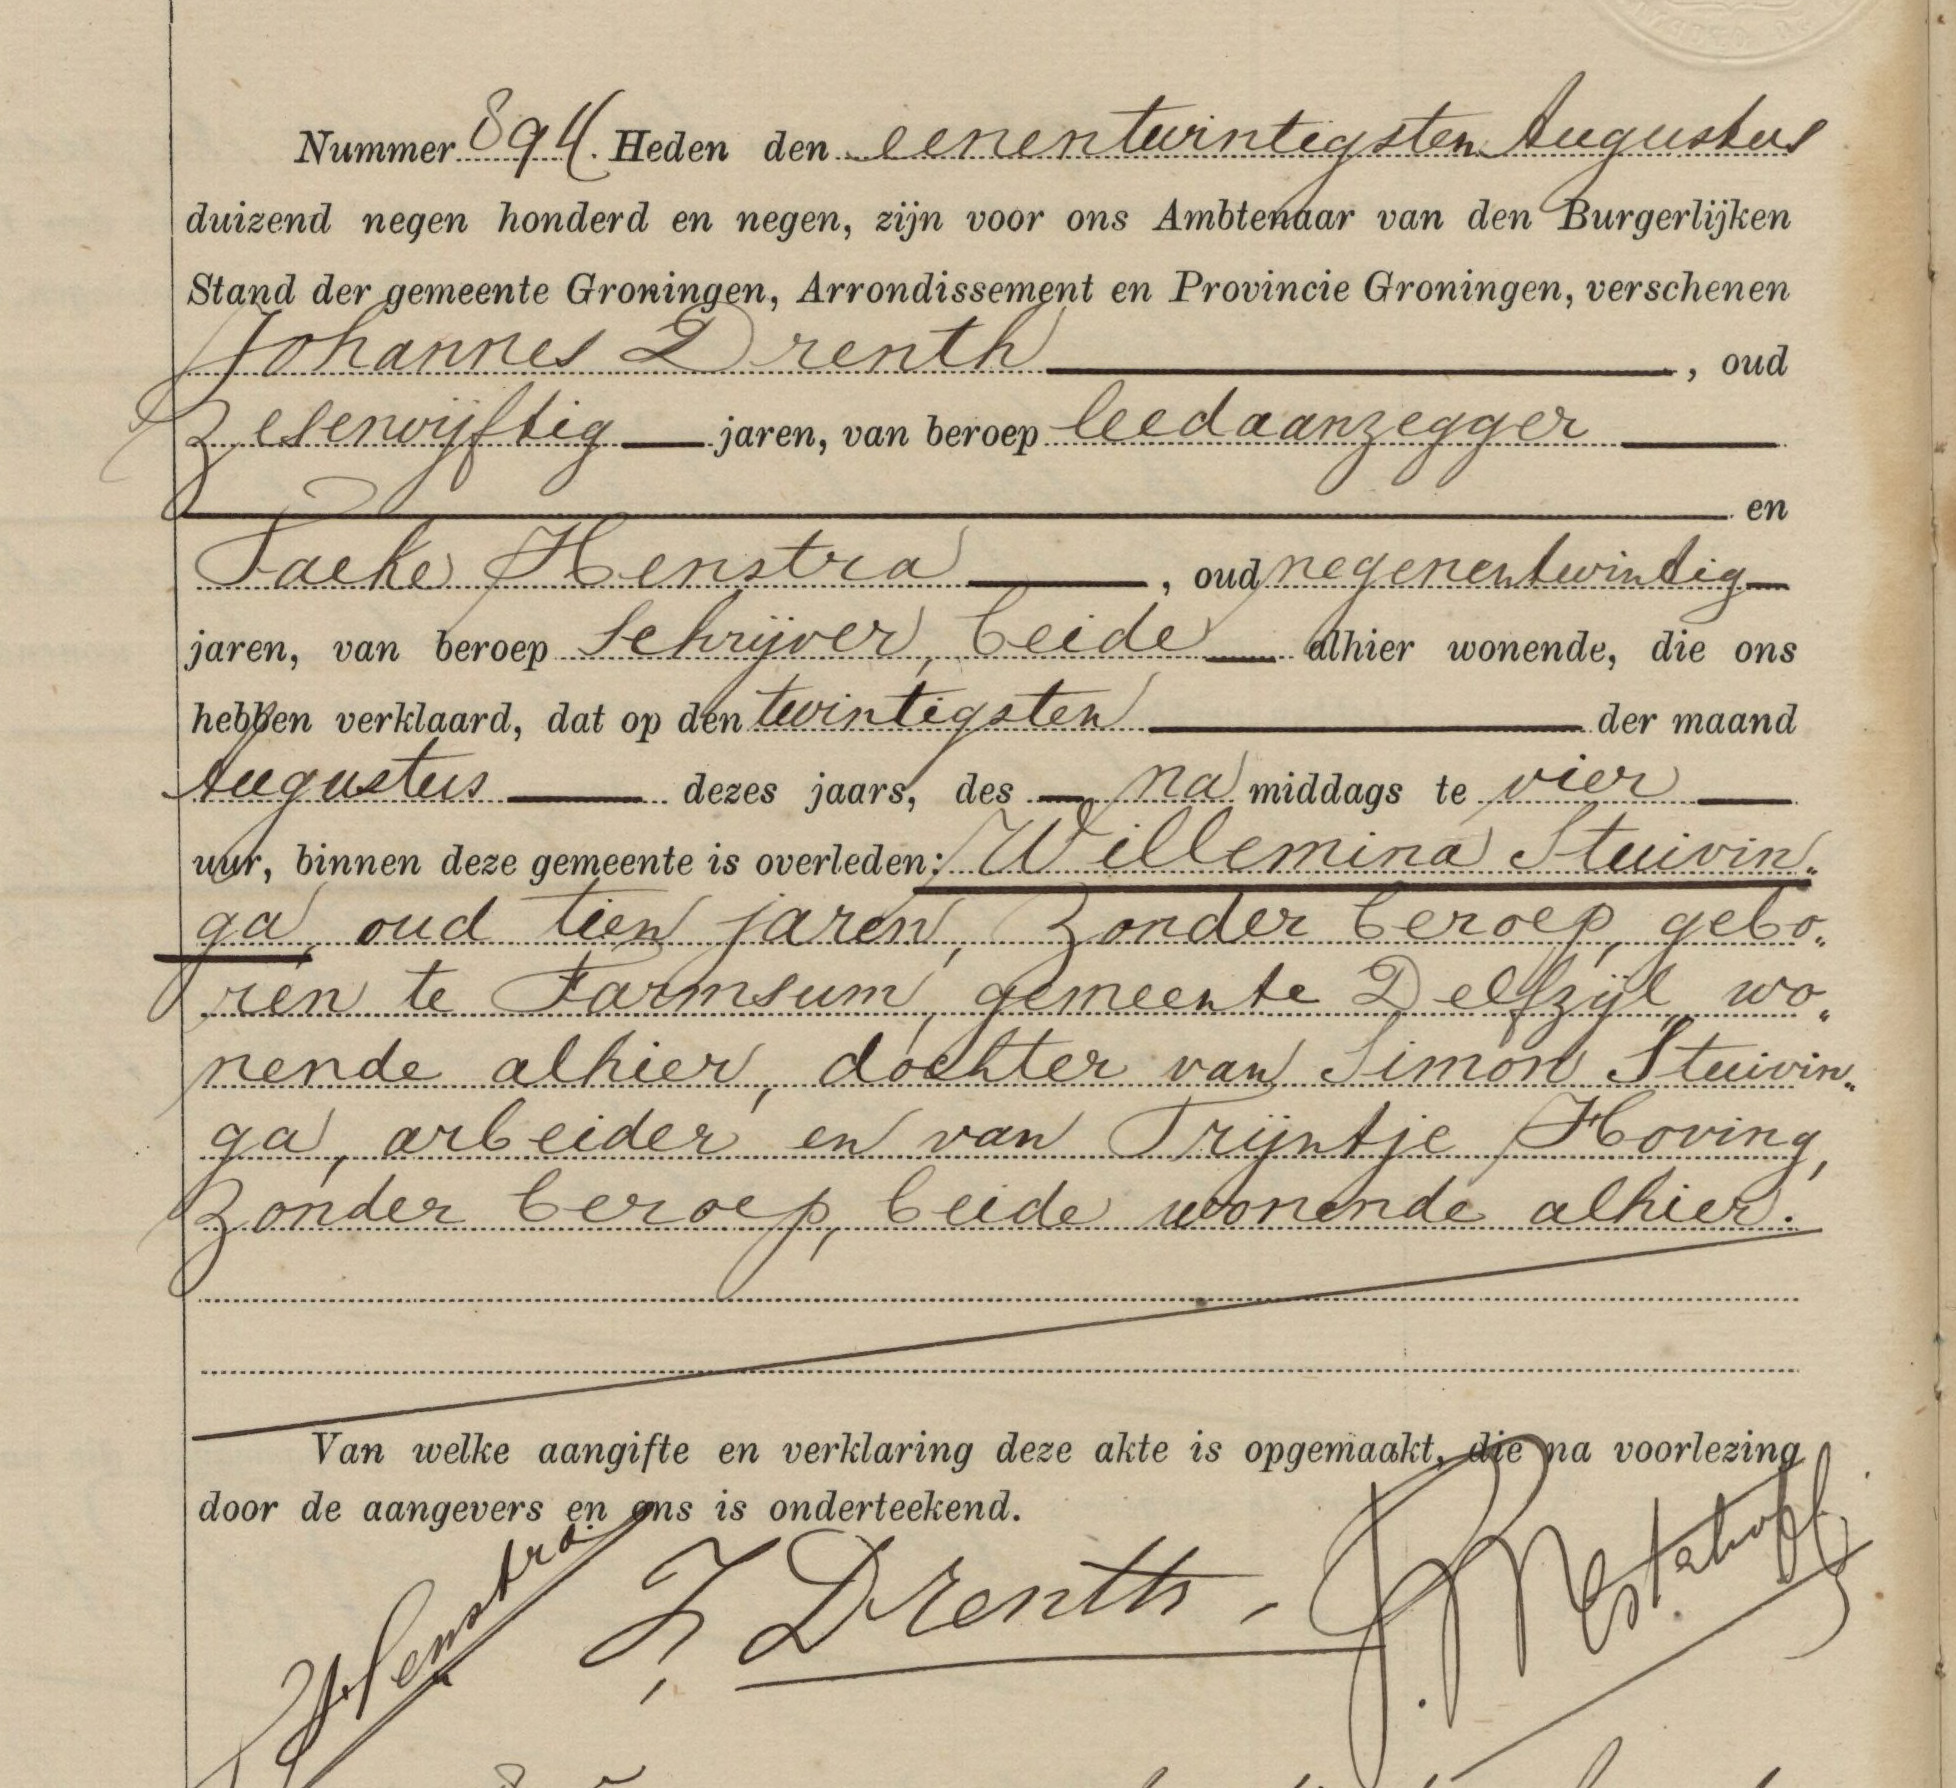 Nummer 894. Heden den eenentwintigsten Augustus
duizend negen honderd en negen, zijn voor ons Ambtenaar van den Burgerlijken
Stand der gemeente Groningen, Arrondissement en Provincie Groningen, verschenen
Johannes Drenth, oud
zesenvijftig jaren, van beroep leedaanzegger
en
Taeke Henstra, oud negenentwintig
jaren, van beroep schrijver, beide alhier wonende, die ons
hebben verklaard, dat op den twintigsten der maand
Augustus dezes jaars, des na middags te vier
uur, binnen deze gemeente is overleden: Willemina Stuivin„
ga, oud tien jaren, zonder beroep, gebo„
ren te Farmsum, gemeente Delfzijl, wo„
nende alhier, dochter van Simon Stuivin„
ga, arbeider en van Trijntje Hoving,
zonder beroep, beide wonende alhier.
Van welke aangifte en verklaring deze akte is opgemaakt, die na voorlezing
door de aangevers en ons is onderteekend.
Henstra. J. Drenth